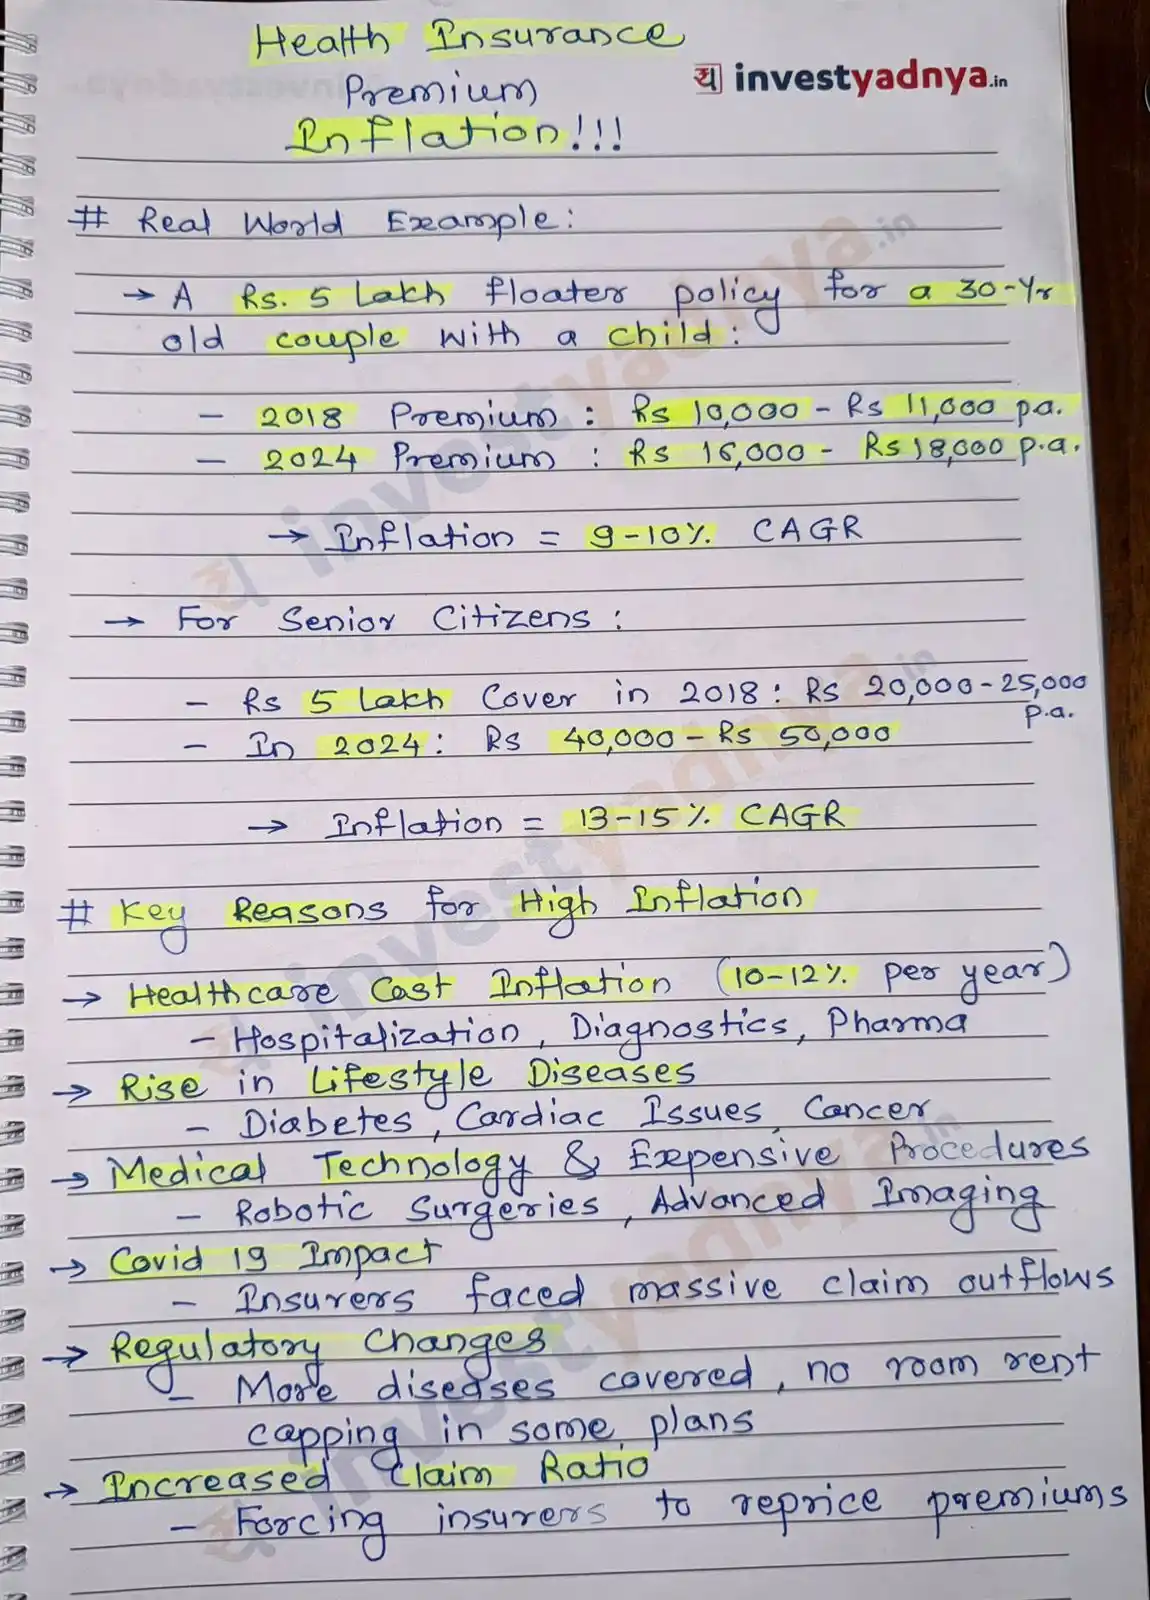 Health Insurance
Premium
Inflation!!!
य investyadnya.in
# Real World Example:
→ A Rs. 5 Lakh floater policy for a 30-Yr
old couple with a child:
- 2018 Premium: Rs 10,000 - Rs 11,000 p.a.
- 2024 Premium: Rs 16,000 - Rs 18,000 p.a.
→ Inflation = 9-10% CAGR
→ For Senior Citizens:
- Rs 5 Lakh Cover in 2018: Rs 20,000-25,000
p.a.
- In 2024: Rs 40,000 - Rs 50,000
→ Inflation = 13-15% CAGR
# Key Reasons for High Inflation
→ Healthcare Cost Inflation (10-12% per year)
- Hospitalization, Diagnostics, Pharma
→ Rise in Lifestyle Diseases
- Diabetes, Cardiac Issues, Cancer
→ Medical Technology & Expensive Procedures
- Robotic Surgeries, Advanced Imaging
→ Covid 19 Impact
- Insurers faced massive claim outflows
→ Regulatory Changes
- More diseases covered, no room rent
capping in some plans
→ Increased Claim Ratio
- Forcing insurers to reprice premiums